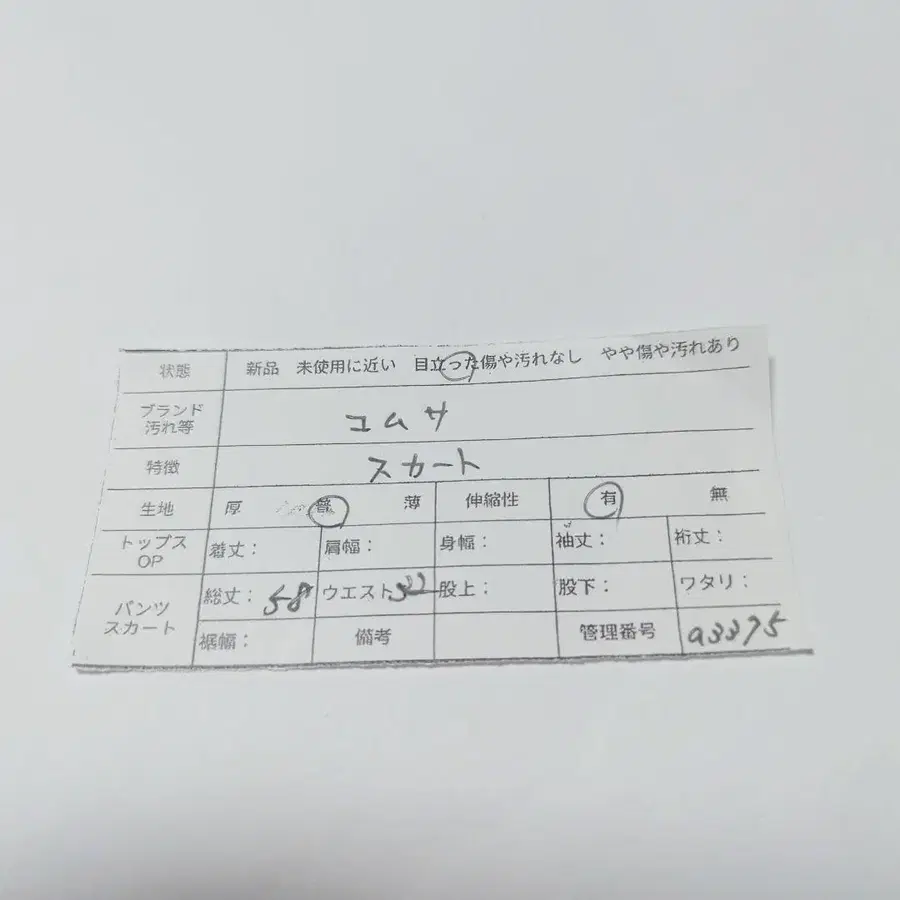 状態 新品 未使用に近い 目立った傷や汚れなし やや傷や汚れあり
ブランド 汚れ等 コムサ
特徴 スカート
生地 厚 普 薄 伸縮性 有 無
トップス OP 着丈： 肩幅： 身幅： 袖丈： 裄丈：
パンツ スカート 総丈： 58 ウエスト 股上： 股下： ワタリ：
裾幅： 備考 管理番号 a3375